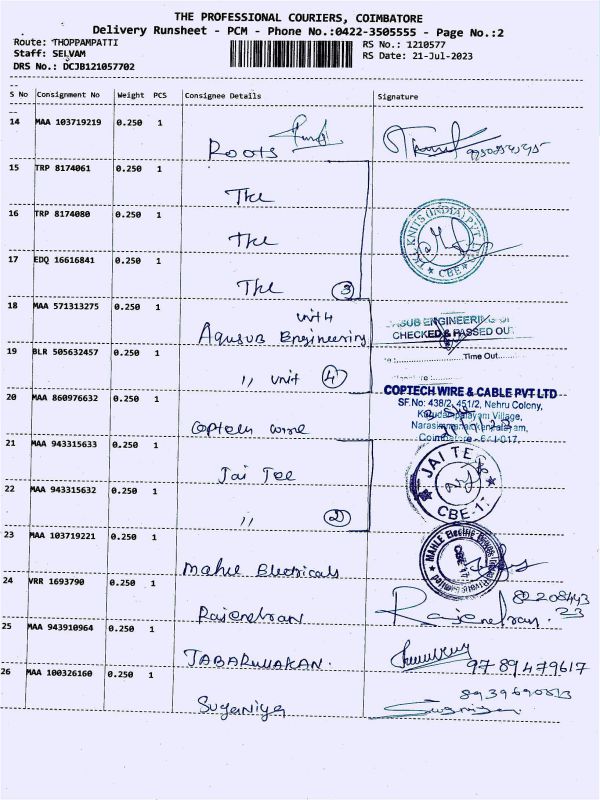 THE PROFESSIONAL COURIERS, COIMBATORE
Delivery Runsheet - PCM - Phone No.:0422-3505555 - Page No.:2
Route: THOPPAMPATTI
RS No.: 1210577
Staff: SELVAM
RS Date: 21-Jul-2023
DRS No.: DCJB121057702
S No Consignment No Weight PCS Consignee Details Signature
14 MAA 103719219 0.250 1
Roots
15 TRP 8174061 0.250 1
The
16 TRP 8174080 0.250 1
The
TKL KNITS (INDIA) PVT
CBE
17 EDQ 16616841 0.250 1
The 3
18 MAA 571313275 0.250 1
unit 4
Aqusub Engineering
ASUB ENGINEERING
CHECKED & PASSED OUT
19 BLR 505632457 0.250 1
Time Out
,, unit 4
20 MAA 860976632 0.250 1
COPTECH WIRE & CABLE PVT LTD
SF.No: 438/2, 451/2, Nehru Colony,
Kurudampalayam Village,
Narasimmanaickenpalayam,
Coimbatore - 641 017.
Coptech wire
21 MAA 943315633 0.250 1
Jai Tee
JAI TE
CBE-17
22 MAA 943315632 0.250 1
,, 2
23 MAA 103719221 0.250 1
Mahle Electricals
MAHLE Electric Drives
Limited
24 VRR 1693790 0.250 1
Rajendran
Rajendran
82208443
23
25 MAA 943910964 0.250 1
JABARULLAKAN.
9789479617
26 MAA 100326160 0.250 1
Suganiya
Suganiya